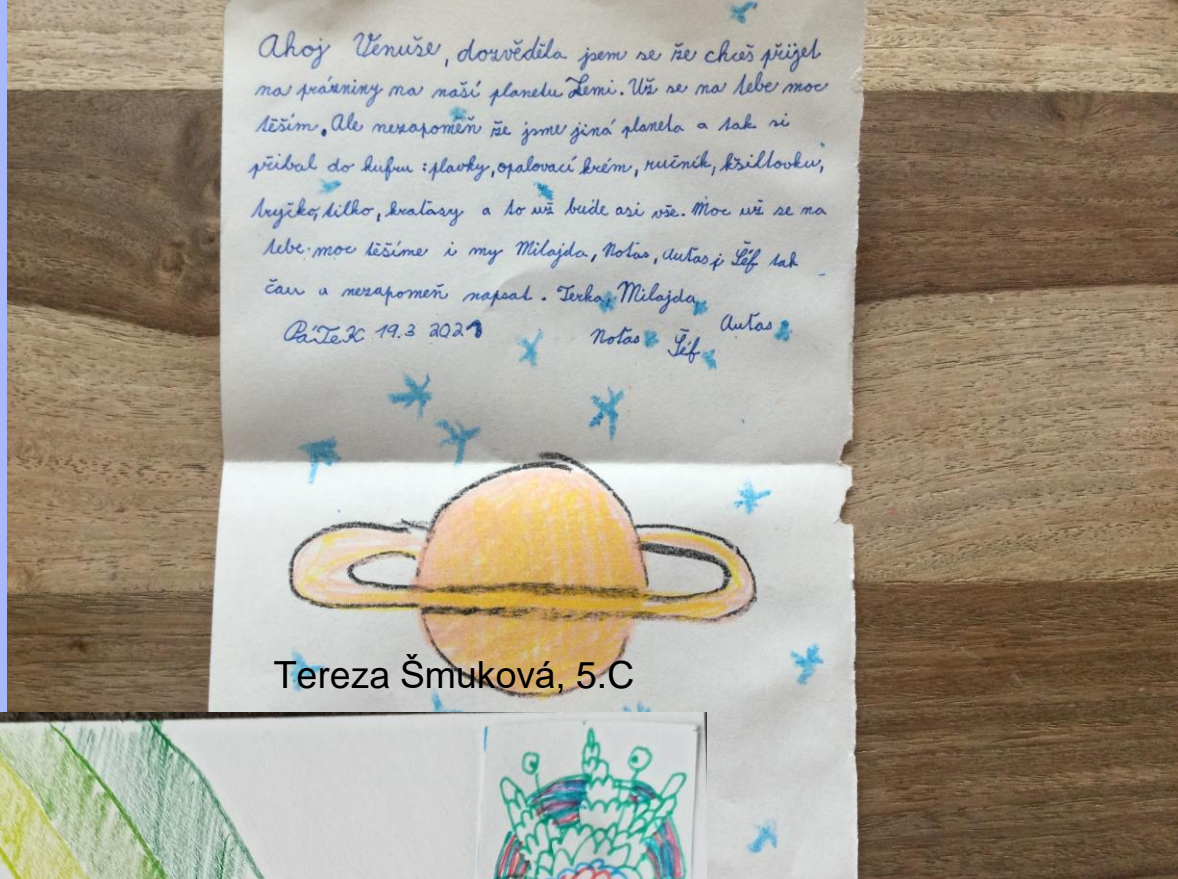 Ahoj Venuše, dozvěděla jsem se že chceš přijet
na prázniny na naší planetu Zemi. Už se na tebe moc
těším. Ale nezapomeň že jsme jiná planeta a tak si
přibal do kufru : plavky, opalovací krém, ručník, kšiltovku,
tryčko, tilko, kraťasy a to už bude asi vše. Moc už se na
tebe moc těšíme i my Milajda, Noťas, Auťas, Šéf tak
čau a nezapomeň napsat. Terka, Milajda,
PáTeK 19.3 2021 Noťas Šéf Auťas
Tereza Šmuková, 5.C